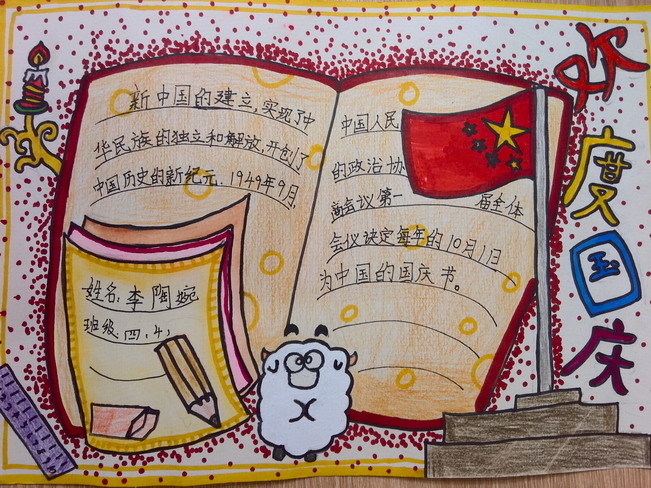 新中国的建立,实现了中
华民族的独立和解放,开创了
中国历史的新纪元.1949年9月
中国人民
的政治协
商会议第一届全体
会议决定每年的10月1日
为中国的国庆节。
姓名:李陶婉
班级:四,4;
欢度国庆